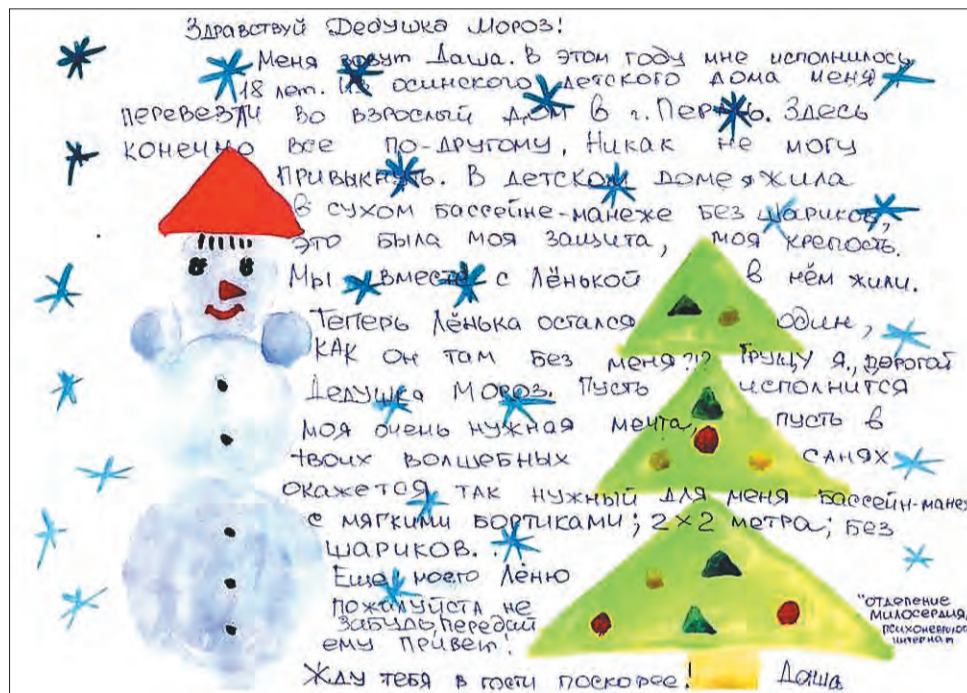 Здравствуй Дедушка Мороз!
Меня зовут Даша. В этом году мне исполнилось
18 лет. Из осинского детского дома меня
перевезли во взрослый дом в г. Пермь. Здесь
конечно все по-другому. Никак не могу
привыкнуть. В детском доме я жила
в сухом бассейне-манеже без шариков,
это была моя защита, моя крепость.
Мы вместе с Лёнькой в нём жили.
Теперь Лёнька остался один,
как он там без меня?!? Грущу я, дорогой
Дедушка Мороз. Пусть исполнится
моя очень нужная мечта, пусть в
твоих волшебных санях
окажется так нужный для меня бассейн-манеж
с мягкими бортиками; 2×2 метра; без
шариков.
Еще моего Лёню
пожалуйста не
забудь, передай
ему привет!
"отделение
милосердия,
психоневролог
интернат
Жду тебя в гости поскорее! Даша